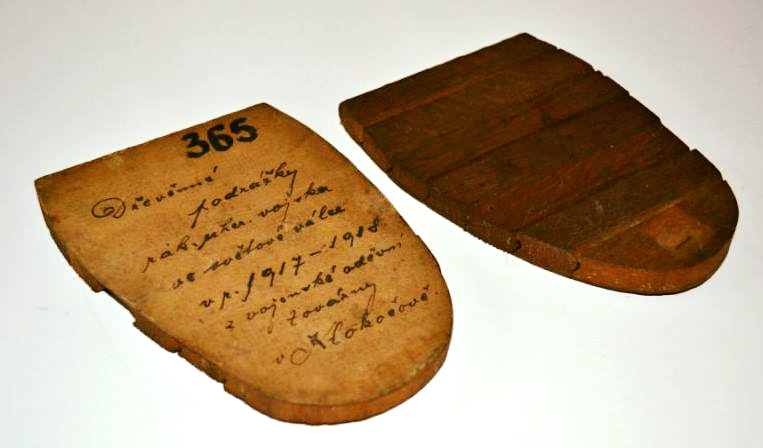 365
Dřevěnné
podrážky
rak.-uher. vojska
ve světové válce
v r. 1917-1918
z vojenské oděvní
továrny
v Klokočově.